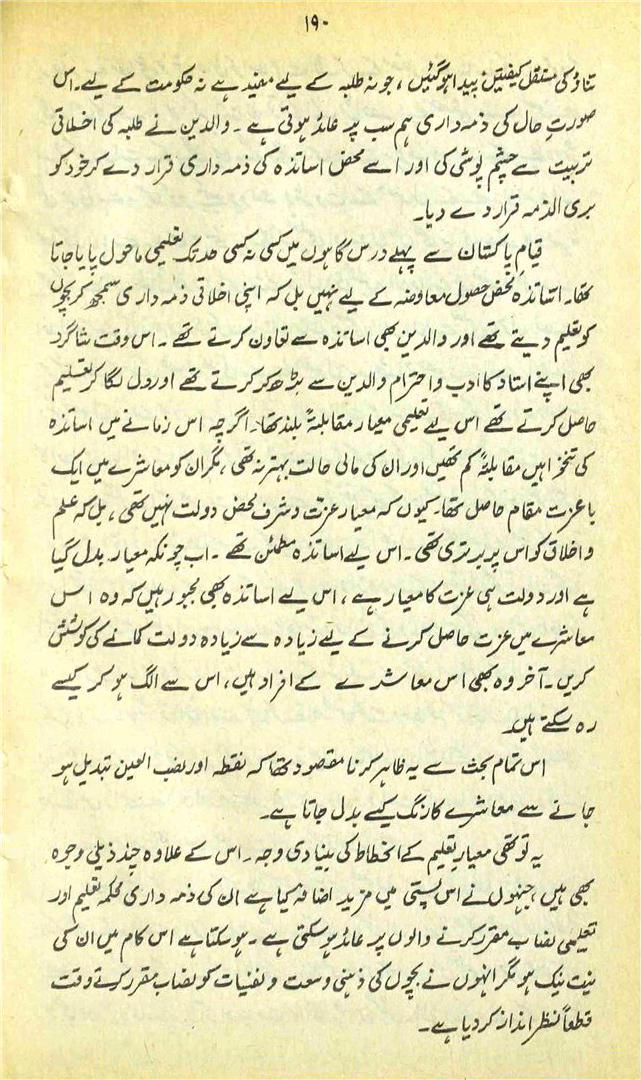 ۱۹۰
تناؤ کی مستقل کیفیتیں پیدا ہو گئیں، جو نہ طلبہ کے لیے مفید ہے نہ حکومت کے لیے۔ اس
صورتِ حال کی ذمہ داری ہم سب پر عائد ہوتی ہے۔ والدین نے طلبہ کی اخلاقی
تربیت سے چشم پوشی کی اور اسے محض اساتذہ کی ذمہ داری قرار دے کر خود کو
بری الذمہ قرار دے دیا۔
قیامِ پاکستان سے پہلے درس گاہوں میں کسی نہ کسی حد تک تعلیمی ماحول پایا جاتا
تھا۔ اساتذہ محض حصولِ معاوضہ کے لیے نہیں بل کہ اپنی اخلاقی ذمہ داری سمجھ کر بچوں
کو تعلیم دیتے تھے اور والدین بھی اساتذہ سے تعاون کرتے تھے۔ اس وقت شاگرد
بھی اپنے استاد کا ادب و احترام والدین سے بڑھ کر کرتے تھے اور دل لگا کر تعلیم
حاصل کرتے تھے اس لیے تعلیمی معیار مقابلۃً بلند تھا۔ اگرچہ اس زمانے میں اساتذہ
کی تنخواہیں مقابلۃً کم تھیں اور ان کی مالی حالت بہتر نہ تھی، مگر ان کو معاشرے میں ایک
با عزت مقام حاصل تھا۔ کیوں کہ معیار عزت و شرف محض دولت نہیں تھی، بل کہ علم
و اخلاق کو اس پر برتری تھی۔ اس لیے اساتذہ مطمئن تھے۔ اب چونکہ معیار بدل گیا
ہے اور دولت ہی عزت کا معیار ہے، اس لیے اساتذہ بھی مجبور ہیں کہ وہ اس
معاشرے میں عزت حاصل کرنے کے لیے زیادہ سے زیادہ دولت کمانے کی کوشش
کریں۔ آخر وہ بھی اس معاشرے کے افراد ہیں، اس سے الگ ہو کر کیسے
رہ سکتے ہیں۔
اس تمام بحث سے یہ ظاہر کرنا مقصود تھا کہ نقطہ اور نصب العین تبدیل ہو
جانے سے معاشرے کا رنگ کیسے بدل جاتا ہے۔
یہ تو تھی معیارِ تعلیم کے انحطاط کی بنیادی وجہ۔ اس کے علاوہ چند ذیلی وجوہ
بھی ہیں، جنہوں نے اس پستی میں مزید اضافہ کیا ہے ان کی ذمہ داری محکمہ تعلیم اور
تعلیمی نصاب مقرر کرنے والوں پر عائد ہو سکتی ہے۔ ہو سکتا ہے اس کام میں ان کی
نیت نیک ہو مگر انہوں نے بچوں کی ذہنی وسعت و نفسیات کو نصاب مقرر کرتے وقت
قطعاً نظر انداز کر دیا ہے۔